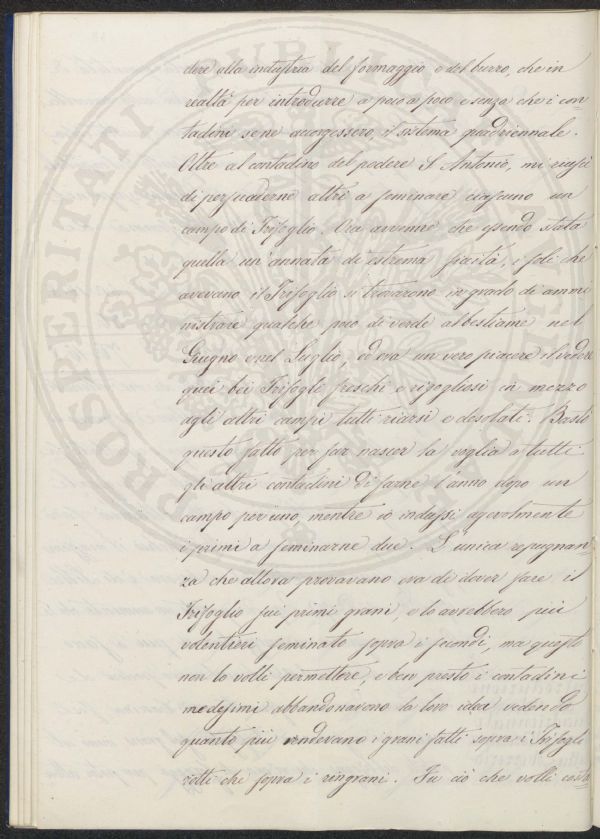 dere alla industria del formaggio e del burro, che in
realtà per introdurre a poco a poco e senza che i con=
tadini se ne accorgessero, il sistema quadriennale.
Oltre al contadino del podere S. Antonio, mi riuscì
di persuaderne altri a seminare ciascuno un
campo di Trifoglio. Ora avvenne che essendo stata
quella un'annata di estrema siccità, i soli che
avevano il Trifoglio si trovarono in grado di ammi
nistrare qualche poco di verde al bestiame nel
Giugno e nel Luglio, ed era un vero piacere il vedere
quei bei Trifogli freschi e rigogliosi in mezzo
agli altri campi tutti riarsi e desolati. Bastò
questo fatto per far nascer la voglia a tutti
gli altri contadini di farne l'anno dopo un
campo per uno, mentre io indussi agevolmente
i primi a seminarne due. L'unica repugnan=
za che allora provavano era di dover fare il
Trifoglio sui primi grani, e lo avrebbero più
volentieri seminato sopra i secondi, ma questo
non lo volli permettere, e ben presto i contadini
medesimi abbandonarono la loro idea vedendo
quanto più rendevano i grani fatti sopra i Trifogli
rotti che sopra i ringrani. Fu ciò che volli
PROSPERITATI PUBLICAE